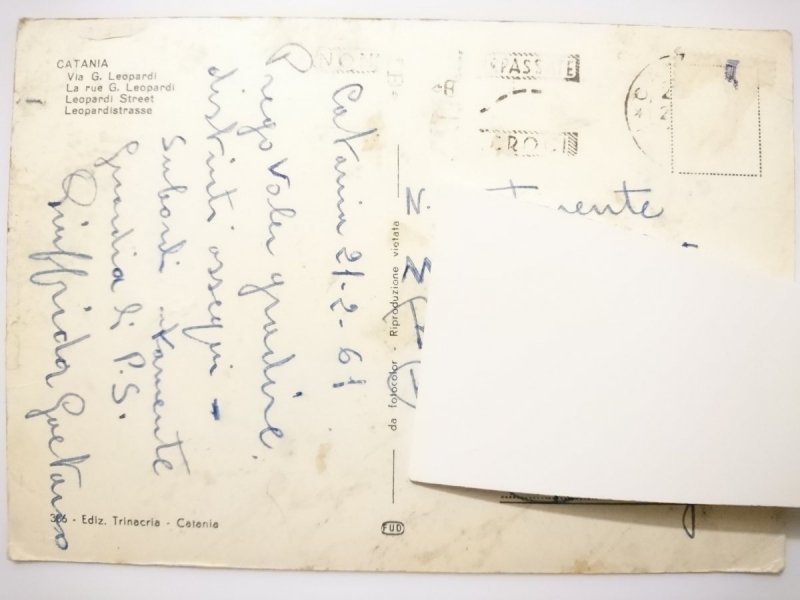 CATANIA
Via G. Leopardi
La rue G. Leopardi
Leopardi Street
Leopardistrasse
NON
PASSATE
CROCI
Catania 21-2-61
Prego Voler gradire
distinti ossequi -
Subordinatamente
Guardia di P.S.
Giuffrida Gaetano
da fotocolor - Riproduzione vietata
366 - Ediz. Trinacria - Catania
FUD